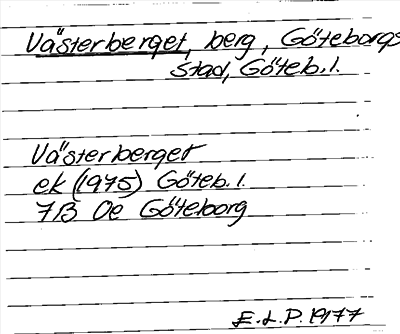 Västerberget, berg, Göteborgs
stad, Göteb. l.
Västerberget
ek (1975) Göteb. l.
7B Oe Göteborg
E.L.P. 1977